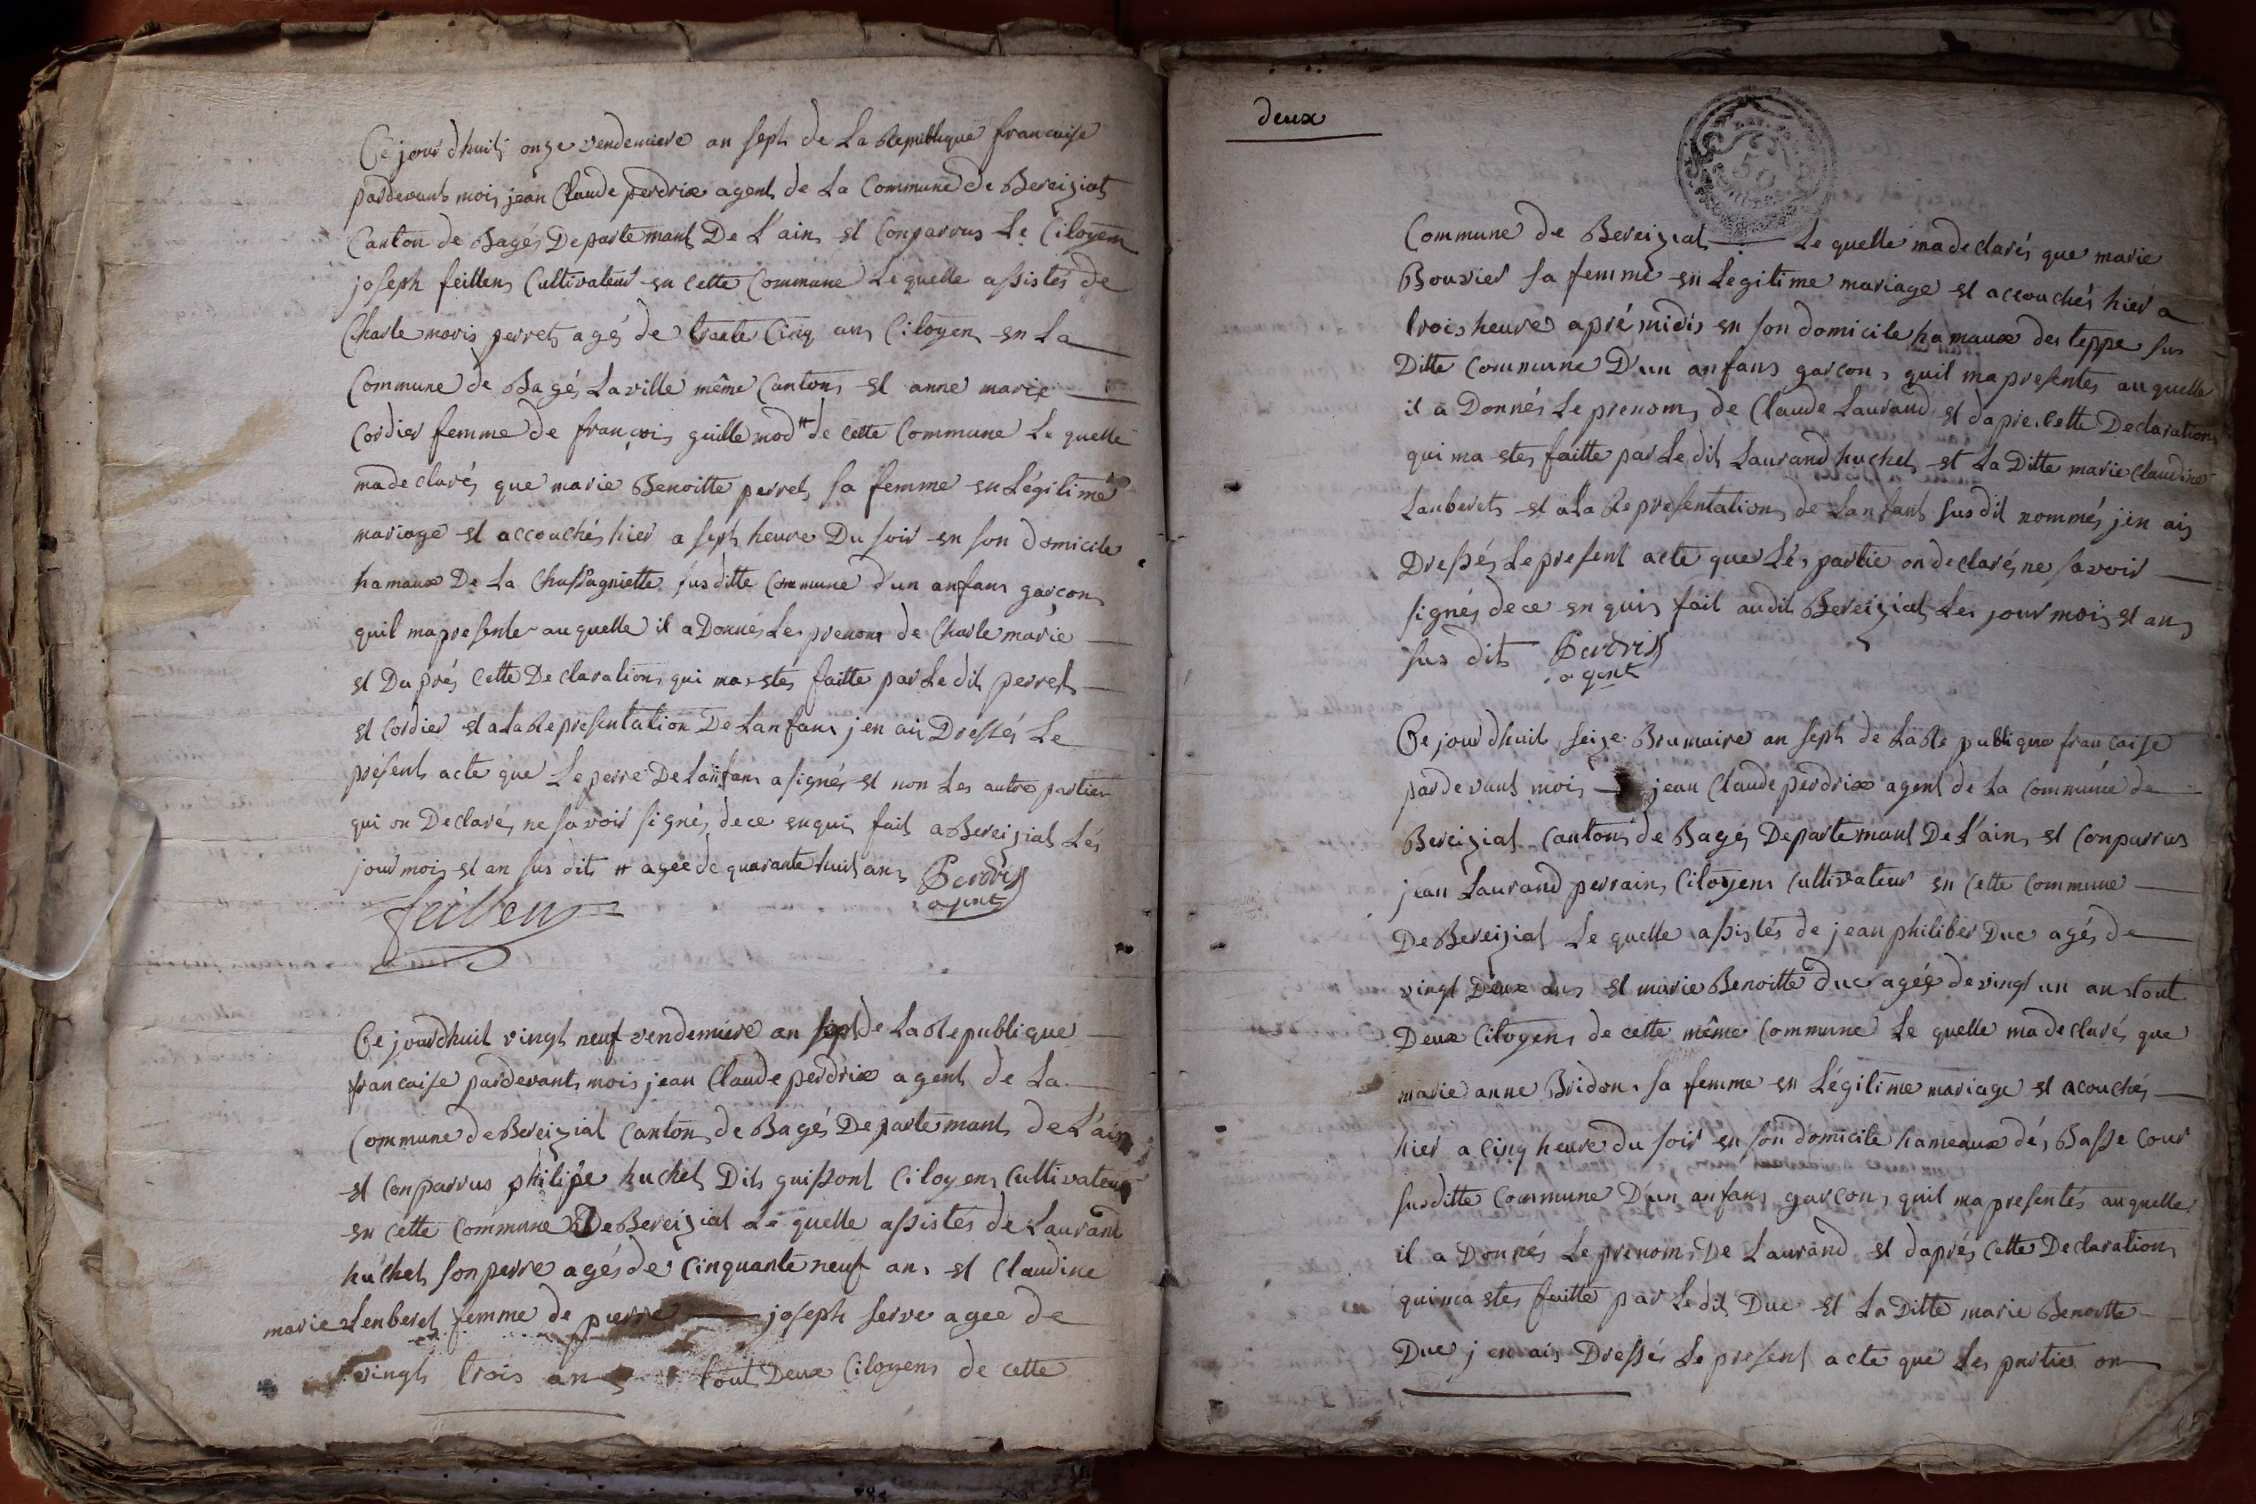 Ce jour dhuit onze vendemiere an sept de La Republique francaise
pardevant mois jean Claude perdrix agent de La Commune de Bereiziat
Canton de Bagés Departemant De L'ain est Conparrus Le Citoyem
joseph feillens Cultivateur en cette Commune Le quelle assistés de
Charle maris perret agés de trante Cinq ans Citoyen en La
Commune de Bagés Laville même Canton et anne marie
Cordier femme de françois guillemod # de cette Commune Le quelle
ma declarés que marie Benoitte perret sa femme en Légitime
mariage et accouchés hier a sept heure Du soir en son domicile
hamaux De La Chassagniette susditte Commune d'un anfans garcon
quil mapresente auquelle il a Donnés Les prenoms de Charle marie
et Daprés Cette Declaration qui ma estés faitte par Le dit perret
et Cordier et a La Representation De Lanfans jen ai Dréssés Le
présent acte que Le perre De Lanfans a signés et non Les autre partier
qui on Declarés ne savoir signés de ce enquis fait a Bereiziat Lés
jour mois et an sus dits # agée de quarante huit ans Perdrix
agent
feillens
Ce jourdhuit vingt neuf vendemiere an sept de La Republique
francaise pardevant mois jean Claude perdrix agent de La
Commune de Bereiziat Canton de Bagés Departemant de L'ain
et Conparrus philipe huchet Dit guissont Citoyen Cultivateur
en cette Commune De Bereiziat Le quelle assistés de Laurand
huchet son perre agés de Cinquante neuf ans et Claudine
marie Lenberet femme de pierre joseph serve agee de
vingt trois ans tout Deux Citoyens de cette
deux
Commune de Bereiziat Le quelle ma declarés que marie
Bouvier sa femme en Legitime mariage et accouchés hier a
trois heure apré midis en son domicile hamaux des teppe sus
Ditte Commune D'un anfans garcon quil ma presentés auquelle
il a Donnés Le prenom de Claude Laurand et daprés Cette Declaration
qui ma estés faitte par Le dit Laurand huchet et La Ditte marie Claudine
Lanberet et a La Representation de Lanfant susdit nommés jen ais
Dressés Le present acte que Lés partie on declarés ne savoir
signés de ce en quis fait audit Bereiziat Les jour mois et an
sus dits Perdrix
agent
Ce jour dhuit seize Brumaire an sept de La Republique francaise
pardevant mois jean Claude perdrix agent de La commune de
Bereiziat Canton de Bagés Departemant De L'ain et Conparrus
jean Laurand perrain Citoyen Cultivateur en Cette Commune
De Bereiziat Le quelle assistés de jean philiber Duc agés de
vingt Deux ans et marie Benoitte Duc agée de vingt un an tout
Deux Citoyens de cette même Commune Le quelle ma declarés que
marie anne Bridon sa femme en Légitime mariage et acouchés
hier a cinq heure du soir en son domicile hameaux dés Basse Cour
susditte Commune D'un anfans garcon quil ma presentés auquelle
il a Donnés Le prenom De Laurand et daprés Cette Declaration
qui ma estés faitte par Le dit Duc et La Ditte marie Benoitte
Duc jen ais Dressés Le present acte que Les partie on